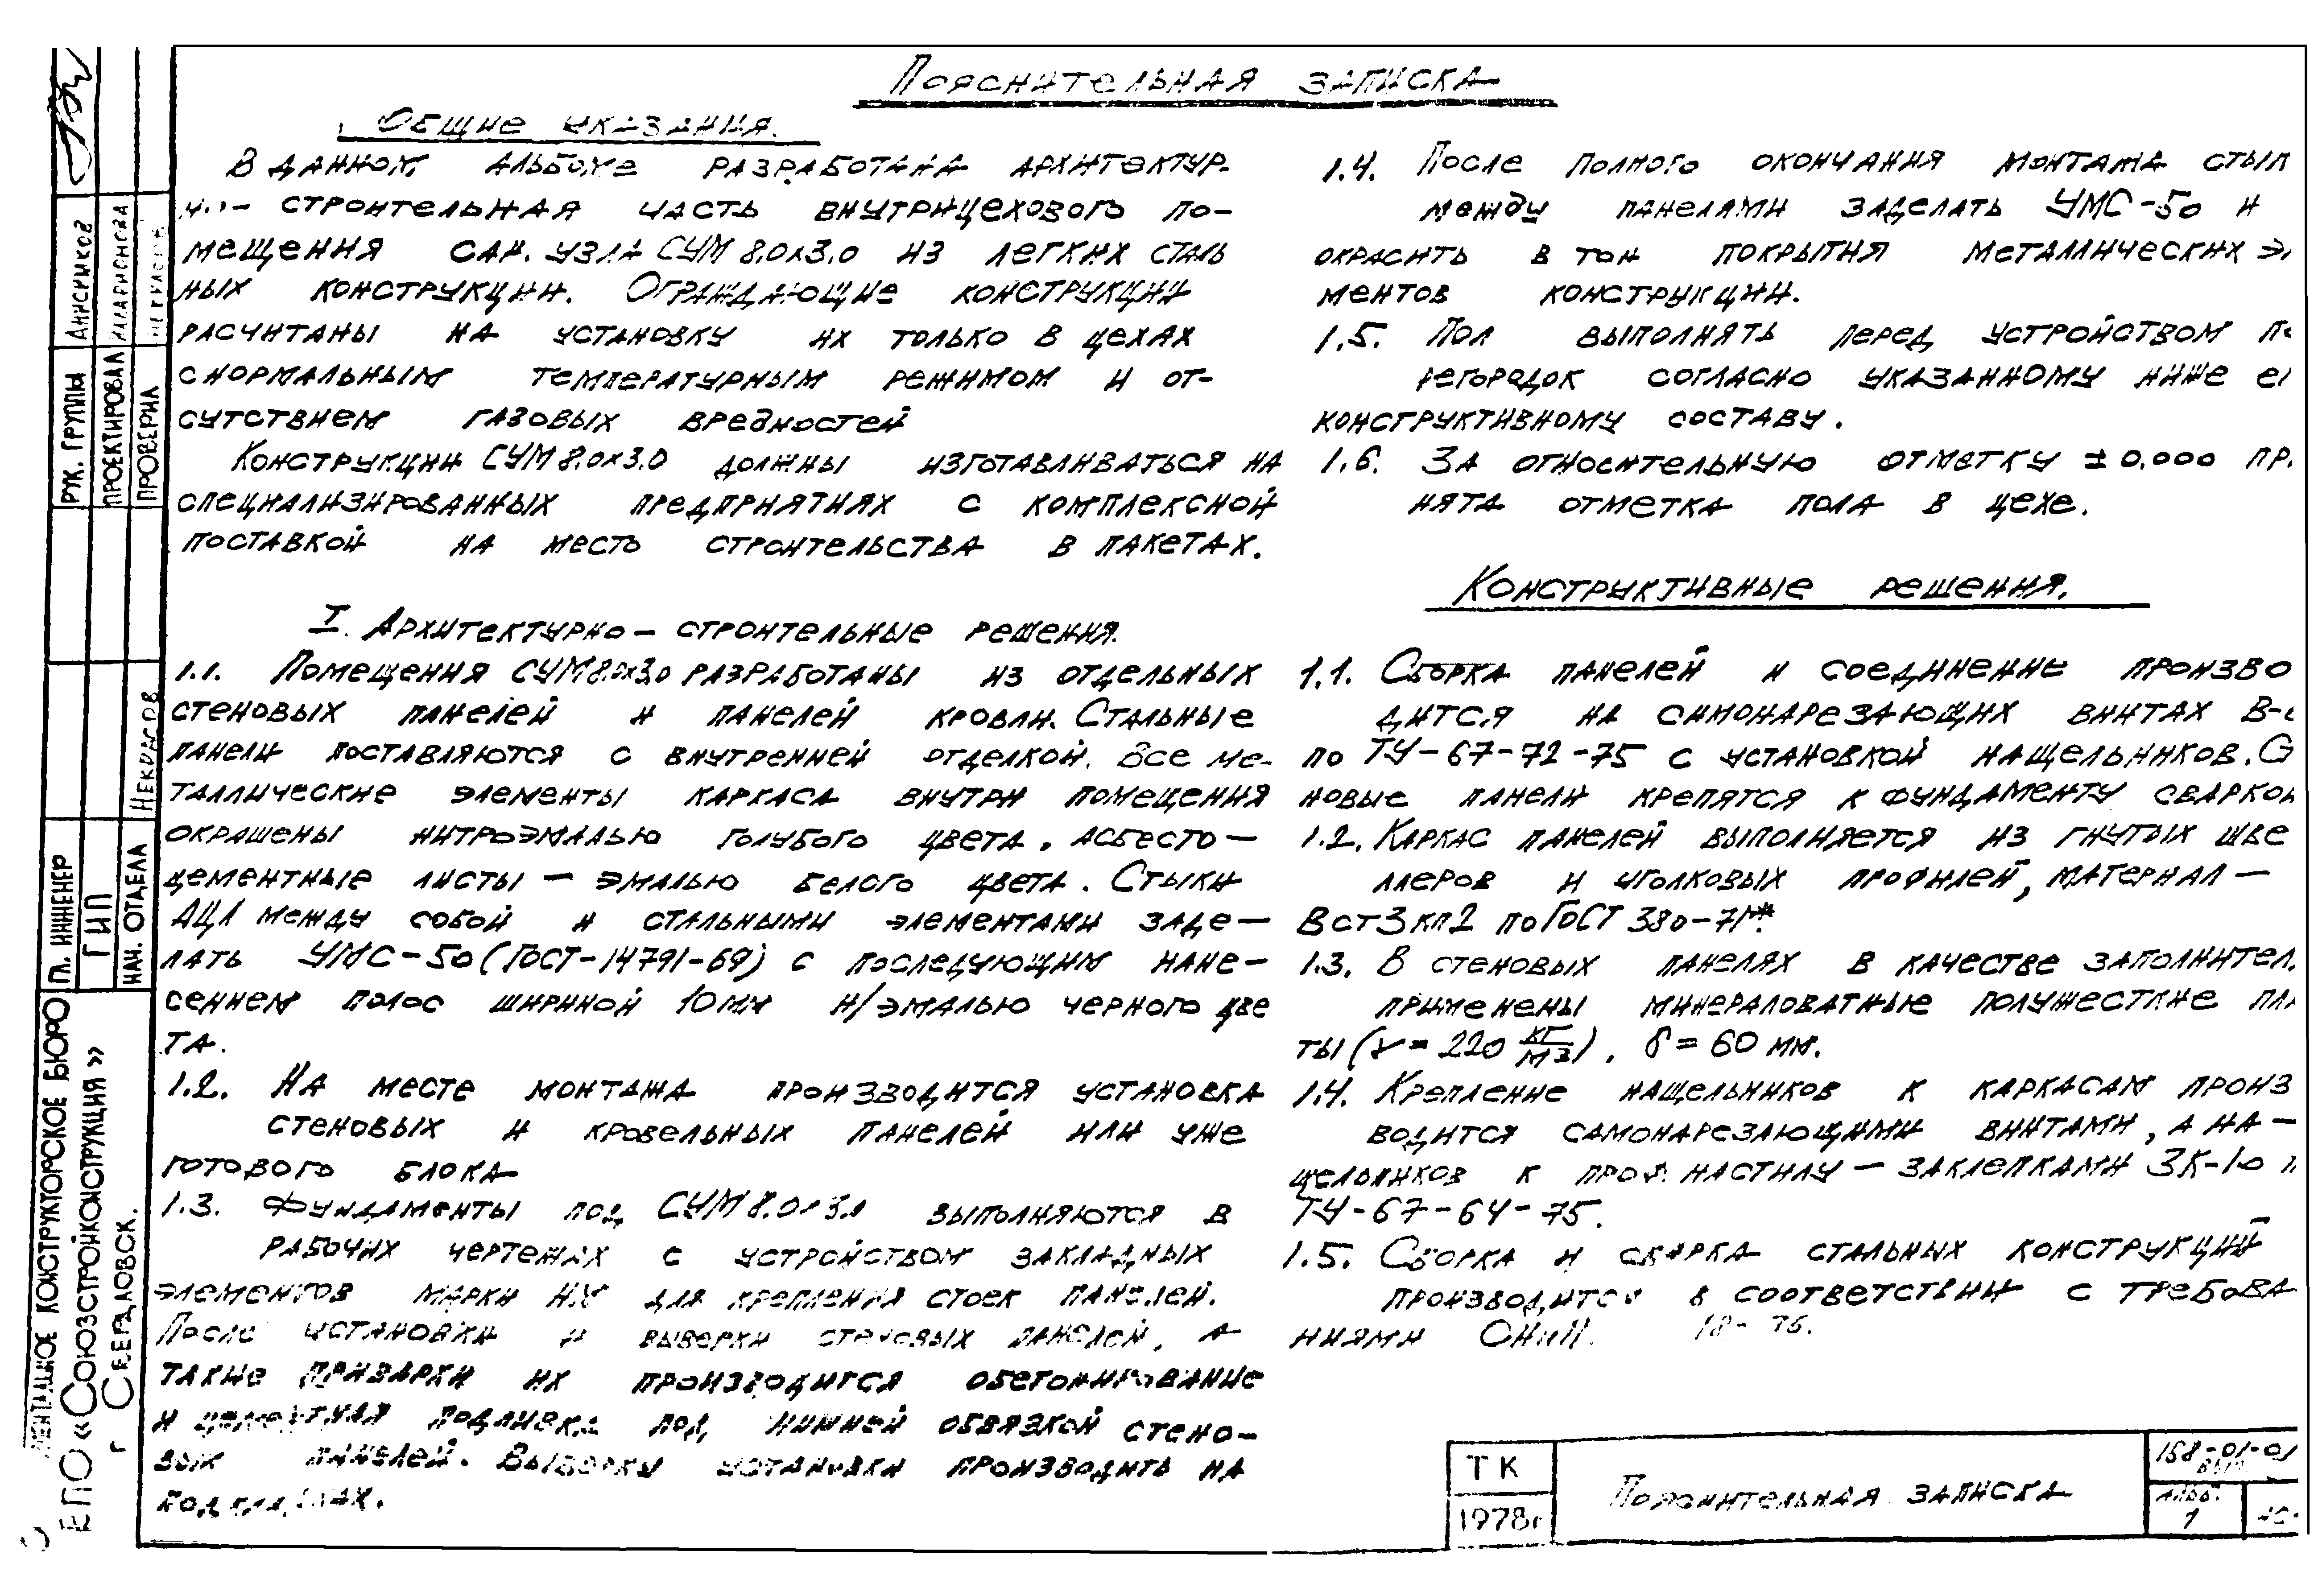 Пояснительная записка
Общие указания.
В данном альбоме разработана архитектур-
но- строительная часть внутрицехового по-
мещения сан. узла СУМ 8.0х3.0 из легких сталь
ных конструкции. Ограждающие конструкции
расчитаны на установку их только в цехах
с нормальным температурным режимом и от-
сутствием газовых вредностей
Конструкции СУМ 8.0х3.0 должны изготавливаться на
специализированных предприятиях с комплексной
поставкой на место строительства в пакетах.
I. Архитектурно – строительные решения.
1.1. Помещения СУМ 8.0х3.0 разработаны из отдельных
стеновых панелей и панелей кровли. Стальные
панели поставляются с внутренней отделкой. Все ме-
таллические элементы каркаса внутри помещения
окрашены нитроэмалью голубого цвета, асбесто –
цементные листы – эмалью белого цвета. Стыки
АЦЛ между собой и стальными элементами заде –
лать УМС-50 (ГОСТ-14791-69) с последующим нане –
сением полос шириной 10мм н/эмалью черного цве
та.
1.2. На месте монтажа производится установка
стеновых и кровельных панелей или уже
готового блока
1.3. Фундаменты под СУМ 8.0х3.0 выполняются в
рабочих чертежах с устройством закладных
элементов марки для крепления стоек панелей.
После установки и выверки стеновых панелей, а
также приварки их производится обетонирование
и цементная подливка под нижней обвязкой стено-
вых панелей. Выверку установки производить на
подкладках.
1.4. После полного окончания монтажа стыки
между панелями заделать УМС-50 и
окрасить в тон покрытия металлических э
ментов конструкции.
1.5. Пол выполнять перед устройством пе
регородок согласно указанному ниже ег
конструктивному составу.
1.6. За относительную отметку ±0.000 пр
нята отметка пола в цехе.
Конструктивные решения.
1.1. Сборка панелей и соединение произво
дится на самонарезающих винтах В-
по ТУ-67-72-75 с установкой нащельников. С
новые панели крепятся к фундаменту сваркой
1.2. Каркас панелей выполняется из гнутых шве
ллеров и уголковых профилей, материал –
Вст3кп2 по ГОСТ 380-71*.
1.3. В стеновых панелях в качестве заполнител
применены минераловатные полужесткие пли
ты (γ = 220 кг/м3), δ = 60 мм.
1.4. Крепление нащельников к каркасам произ
водится самонарезающими винтами, а на –
щельников к проф. настилу – заклепками ЗК-10 п
ТУ-67-64-75.
1.5. Сборка и сварка стальных конструкций
производится в соответствии с требова
ниями СНиП. 18-75.
ТК
1978г
Пояснительная записка
158-01-01
Альб.
1
Рук. группы Анисимков
Проектировал Илларионова
Проверил Некрасов
Гл. инженер
ГИП
Нач. отдела Некрасов
конструкторское бюро
ЕПО «Союзстройконструкция»
г Свердловск.